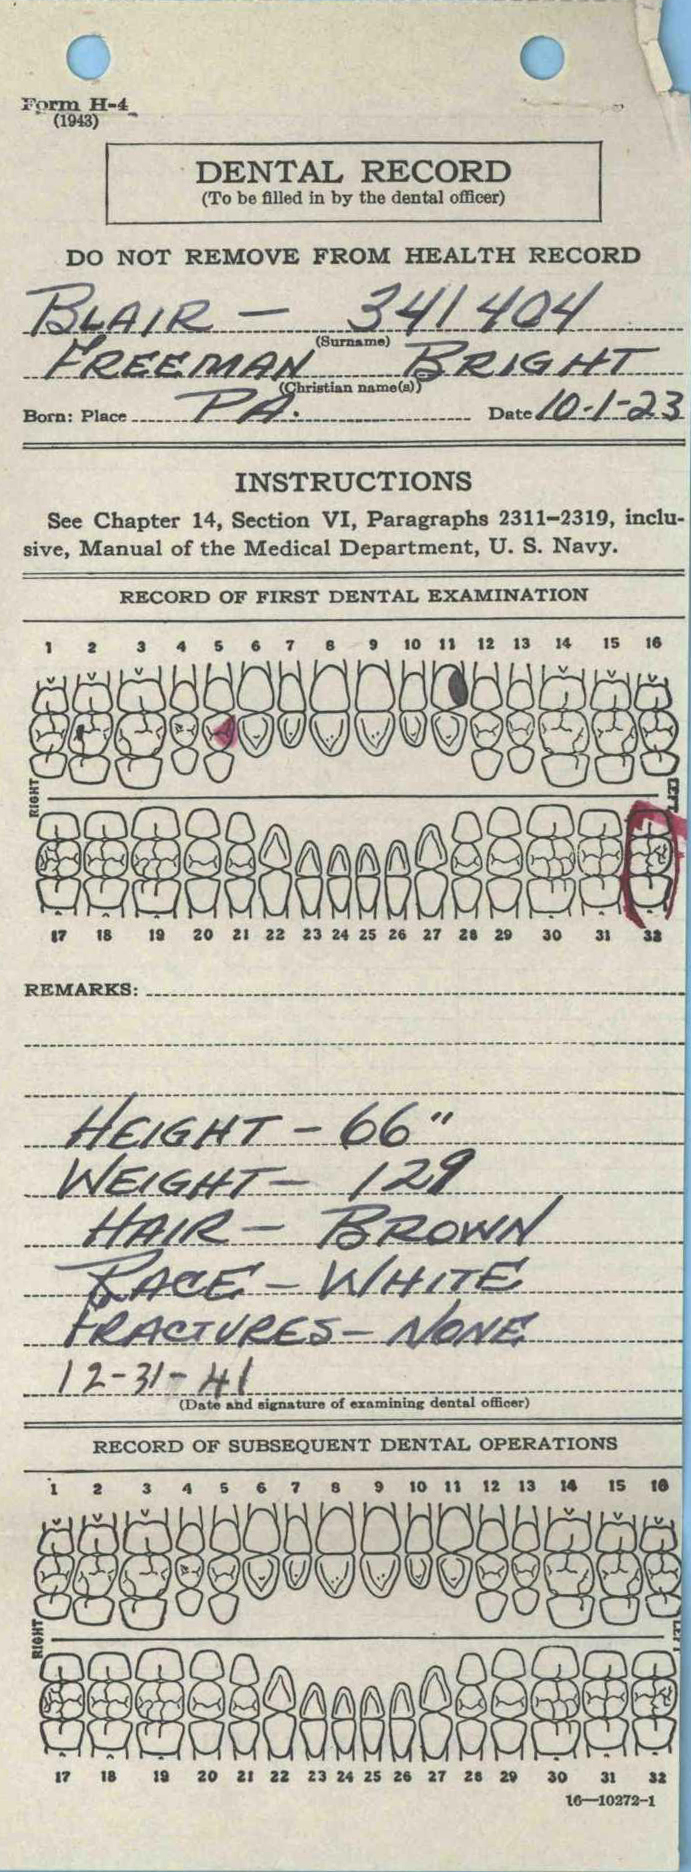 Form H-4
(1943)
DENTAL RECORD
(To be filled in by the dental officer)
DO NOT REMOVE FROM HEALTH RECORD
BLAIR — 341404
(Surname)
FREEMAN BRIGHT
(Christian name(s))
Born: Place PA. Date 10-1-23
INSTRUCTIONS
See Chapter 14, Section VI, Paragraphs 2311–2319, inclu-
sive, Manual of the Medical Department, U. S. Navy.
RECORD OF FIRST DENTAL EXAMINATION
1 2 3 4 5 6 7 8 9 10 11 12 13 14 15 16
RIGHT LEFT
17 18 19 20 21 22 23 24 25 26 27 28 29 30 31 32
REMARKS:
HEIGHT – 66"
WEIGHT – 129
HAIR – BROWN
RACE – WHITE
FRACTURES – NONE
12-31-41
(Date and signature of examining dental officer)
RECORD OF SUBSEQUENT DENTAL OPERATIONS
1 2 3 4 5 6 7 8 9 10 11 12 13 14 15 16
RIGHT LEFT
17 18 19 20 21 22 23 24 25 26 27 28 29 30 31 32
16—10272-1